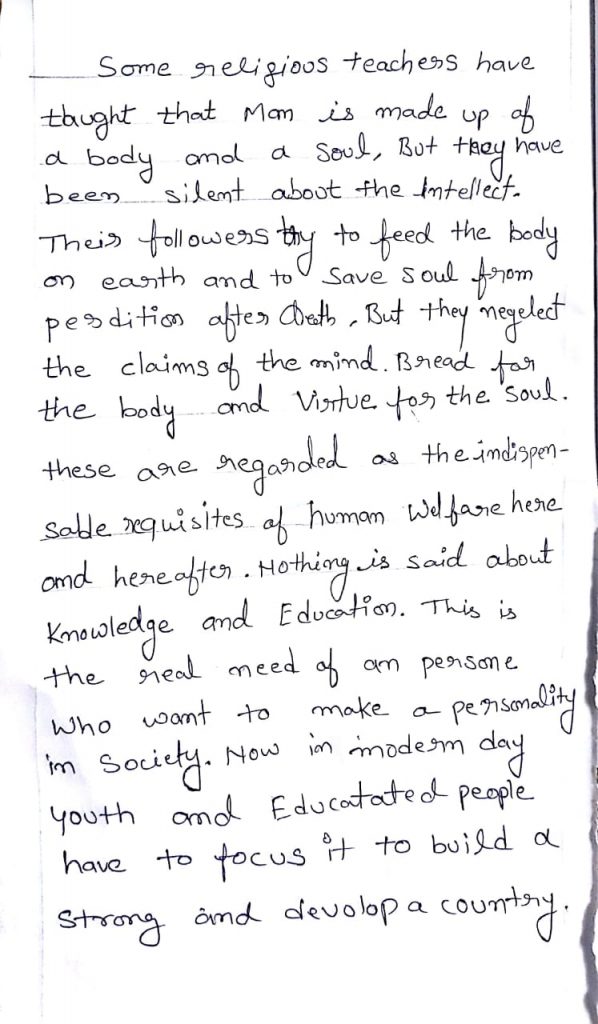 Some religious teachers have
taught that Man is made up of
a body and a soul, But they have
been silent about the Intellect.
Their followers try to feed the body
on earth and to save soul from
perdition after death, But they negelect
the claims of the mind. Bread for
the body and Virtue for the soul.
these are regarded as the indispen-
sable requisites of human welfare here
and hereafter. Nothing is said about
Knowledge and Education. This is
the real need of an persone
who want to make a personality
in Society. Now in modern day
youth and Educatated people
have to focus it to build a
strong and devolop a country.